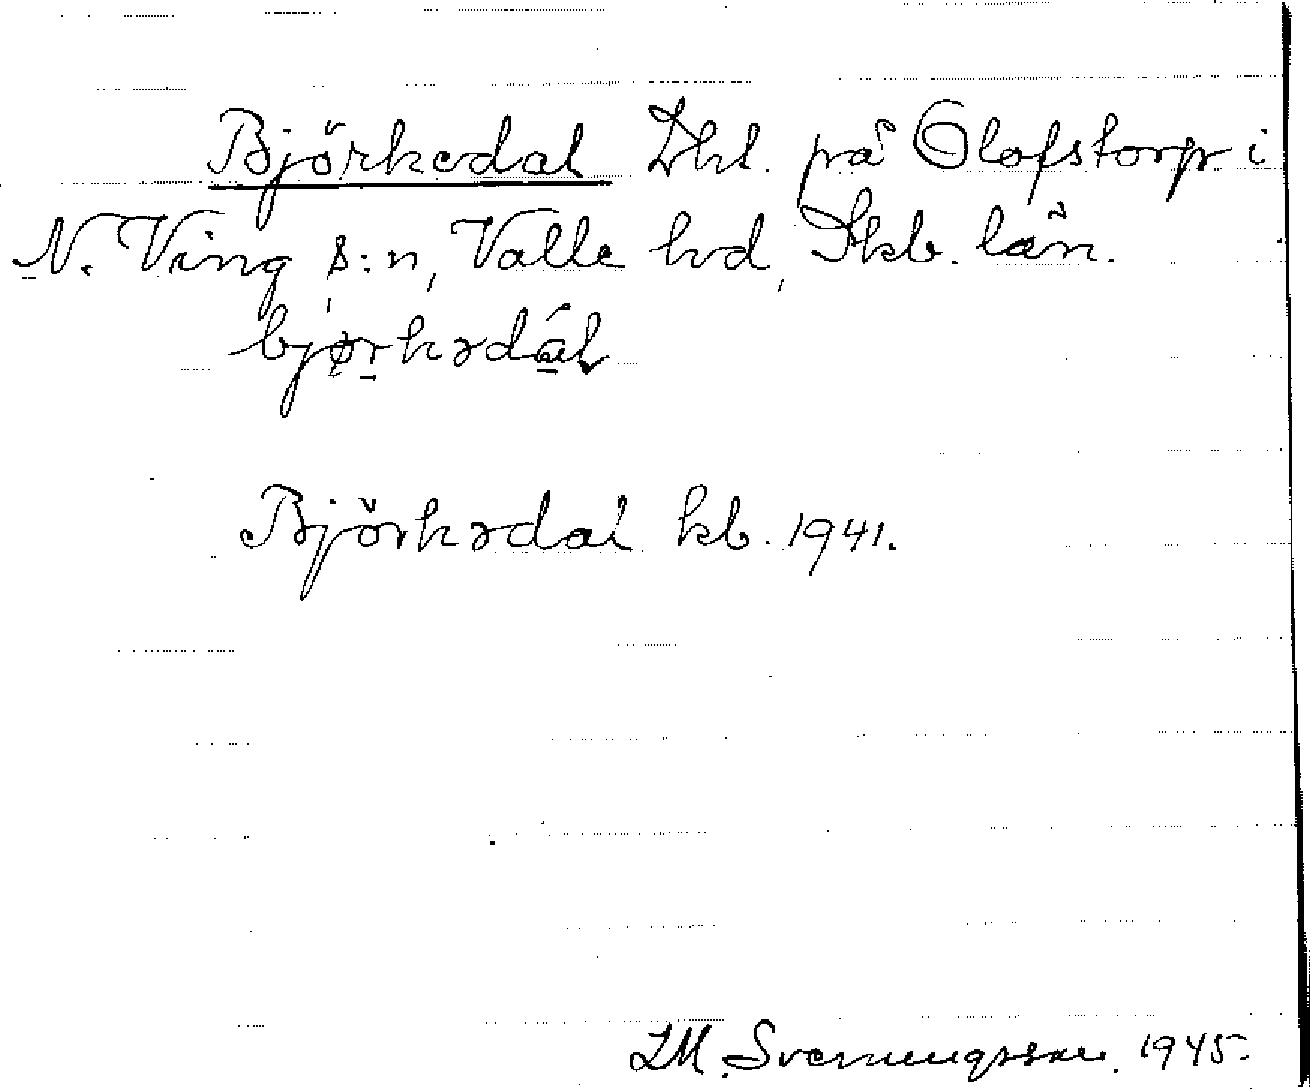 Björkedal Lht. på Olofstorp i
N. Ving s:n, Valle hd, Skb. län.
bjørkədál
Björkedal kb. 1941.
I.M. Svenungsson. 1945.